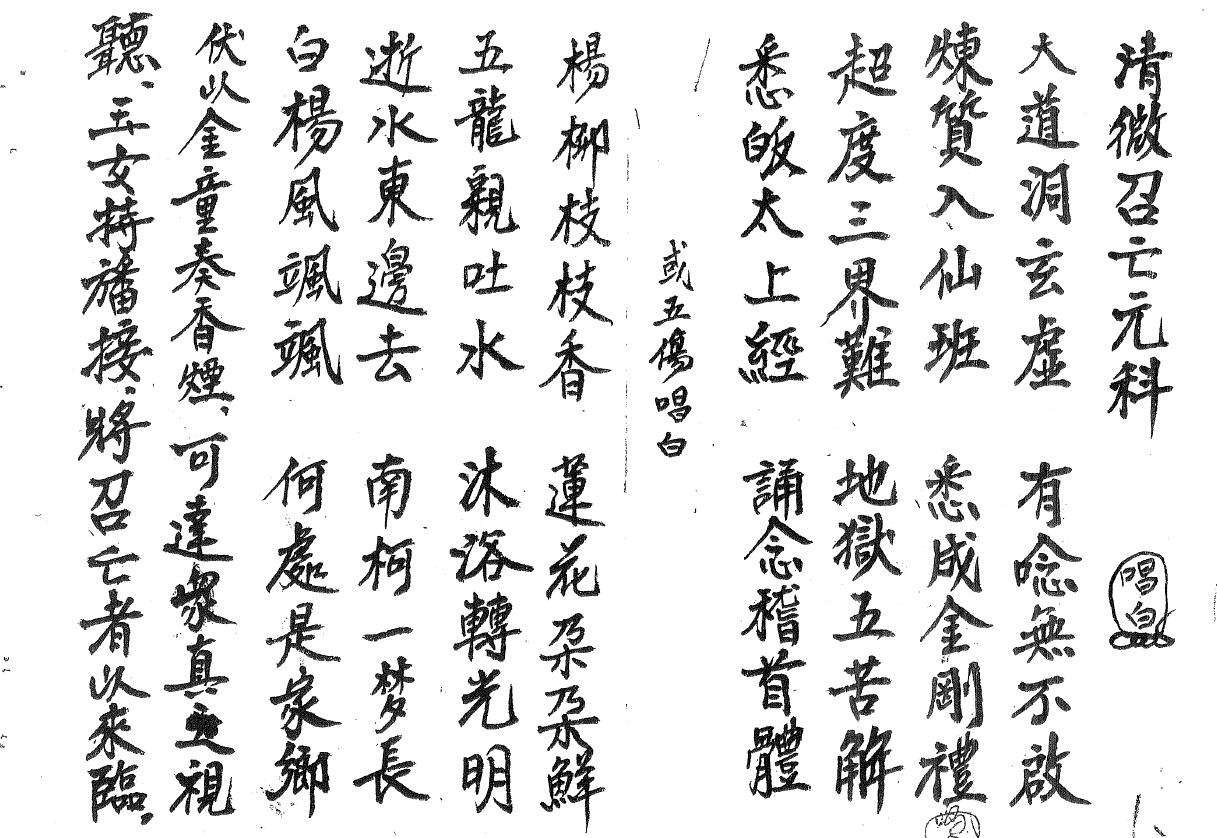 清微召亡元科 唱白
大道洞玄虛 有唸無不啟
煉質入仙班 悉成金剛禮
超度三界難 地獄五苦解
悉皈太上經 誦念稽首體
或五傷唱白
楊柳枝枝香 蓮花朶朶鮮
五龍親吐水 沐浴轉光明
逝水東邊去 南柯一梦長
白楊風颯颯 何處是家鄉
伏以金童奏香煙、可達衆真之視
聽、玉女持旛接、將召亡者以來臨、